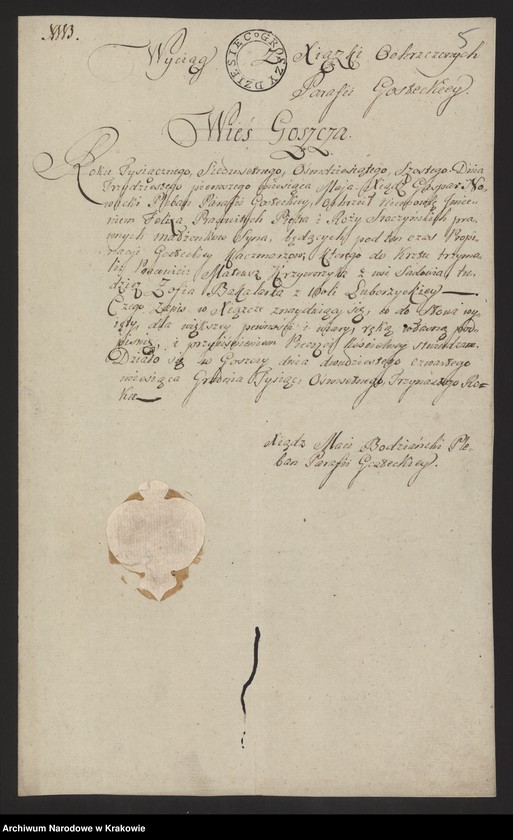 5
Wyciąg z Xiążki Ochrzczonych
DZIESIEC GROSZY
Parafii Goszeckiey.
Wieś Goszcza.
Roku Tysiącznego, Siedmsetnego, Ośmdziesiątego, Szostego Dnia
Trzydziestego pierwszego miesiąca Maja. Xiądz Gaspar No-
wacki Pleban Parafii Goszeckiey, Ochrzcił niemowlę Jmie-
niem Felixa, Pracowitych Piotra i Róży Traczyńskich pra-
wnych małżonków Syna, będących pod ten czas
Goszeckiey Kaczmarzów, Którego do Krztu trzyma-
li Mateusz Krzyworzyka z wsi Sadowia, tu-
dzież Zofia Bakalarka z Woli Luborzyckiey
Czego Zapis w Xiążce znayduiący się, co do Słowa wy-
ięty, dla większey pewności i wiary, ręką własną pod-
pisuię, i przyciśnieniem Pieczęci kościelney stwierdzam.
Działo się w Goszczy dnia dwudziestego czwartego
miesiąca Grudnia Tysiąc, Ośmsetnego, Trzynastego Ro-
ku
Xiądz Maci Bodziański Ple-
ban Parafii Goszeckiey.
Archiwum Narodowe w Krakowie